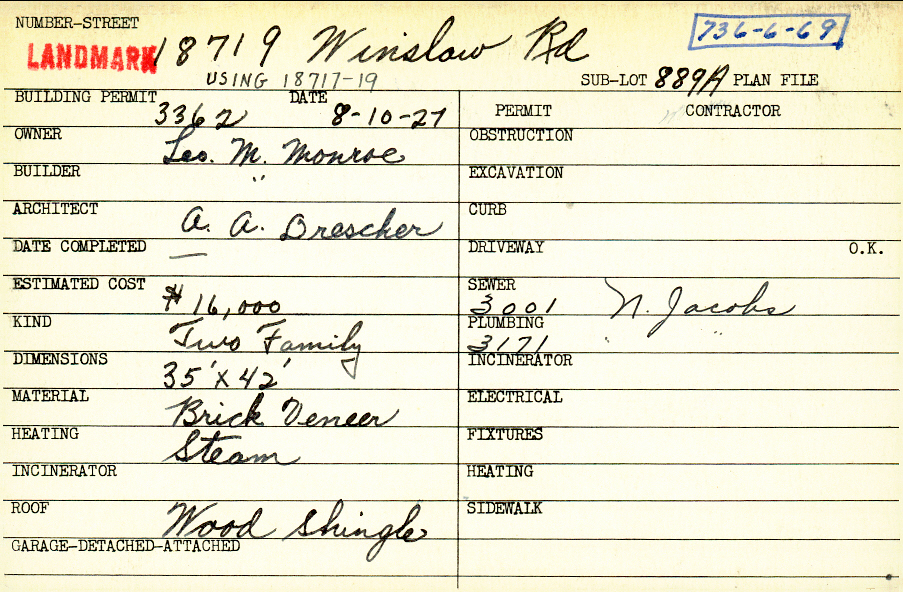 NUMBER-STREET
LANDMARK 18719 Winslow Rd 736-6-69
USING 18717-19 SUB-LOT 889A PLAN FILE
BUILDING PERMIT 3362 DATE 8-10-27
OWNER Leo. M. Monroe
BUILDER "
ARCHITECT A. A. Drescher
DATE COMPLETED —
ESTIMATED COST $16,000
KIND Two Family
DIMENSIONS 35' X 42'
MATERIAL Brick Veneer
HEATING Steam
INCINERATOR
ROOF Wood Shingle
GARAGE-DETACHED-ATTACHED
PERMIT CONTRACTOR
OBSTRUCTION
EXCAVATION
CURB
DRIVEWAY O.K.
SEWER 3001 N. Jacobs
PLUMBING 3171 " "
INCINERATOR
ELECTRICAL
FIXTURES
HEATING
SIDEWALK